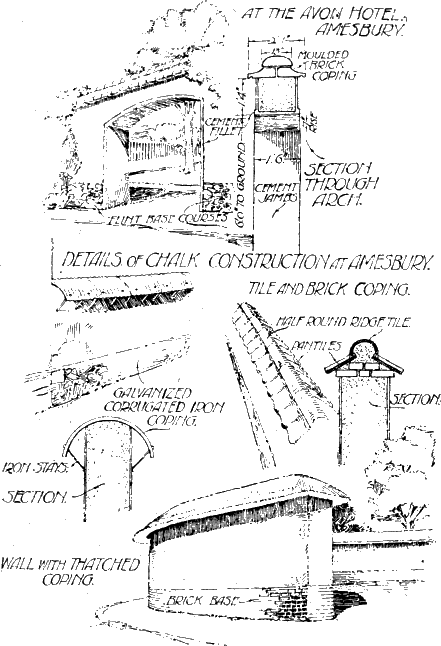 AT THE AVON HOTEL,
AMESBURY.
MOULDED
BRICK
COPING
CEMENT
FILLET
1'.4"
6'.0" TO GROUND
1'.6"
CEMENT
JAMBS
SECTION
THROUGH
ARCH.
FLINT BASE COURSES
DETAILS OF CHALK CONSTRUCTION AT AMESBURY.
TILE AND BRICK COPING.
HALF ROUND RIDGE TILE.
PANTILES
SECTION.
GALVANIZED
CORRUGATED IRON
COPING.
IRON STAYS.
SECTION.
WALL WITH THATCHED
COPING.
BRICK BASE